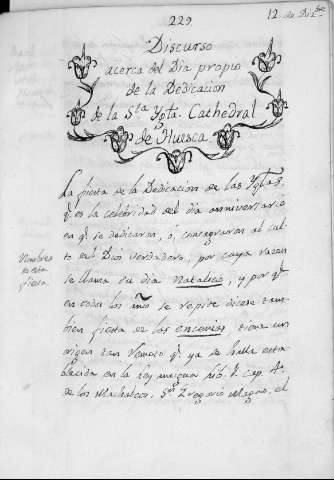 229
12. de Dizbre
Discurso
acerca del Dia propio
de la Dedicacion
de la Sta Ygta. Cathedral
de Huesca.
La fiesta de la Dedicacion de las Ygtas,
q. es la celebridad del dia anniversario
en q. se dedicaron, ó, consagraron al cul-
to del Dios verdadero, por cuya razon
se llama su dia Natalicio, y por q.
en todos los años se repite dicese tam-
bien fiesta de los encenias, tiene un
origen tan remoto q. ya se halla esta
blecida en la ley antigua lib. 1. cap. 4.
de los Machabeos. Sn Gregorio Magno, el
Nombres
de esta
fiesta.